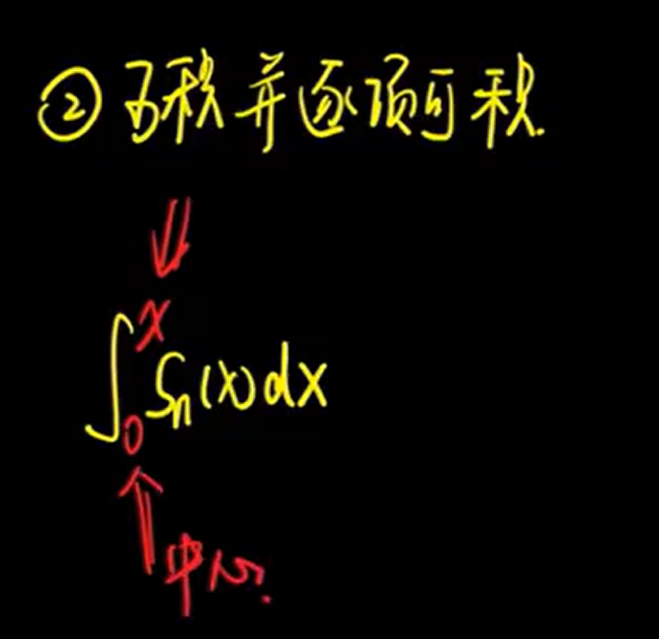 ② 可积并逐项可积.
∫₀ˣ Sₙ(x)dx
中心.